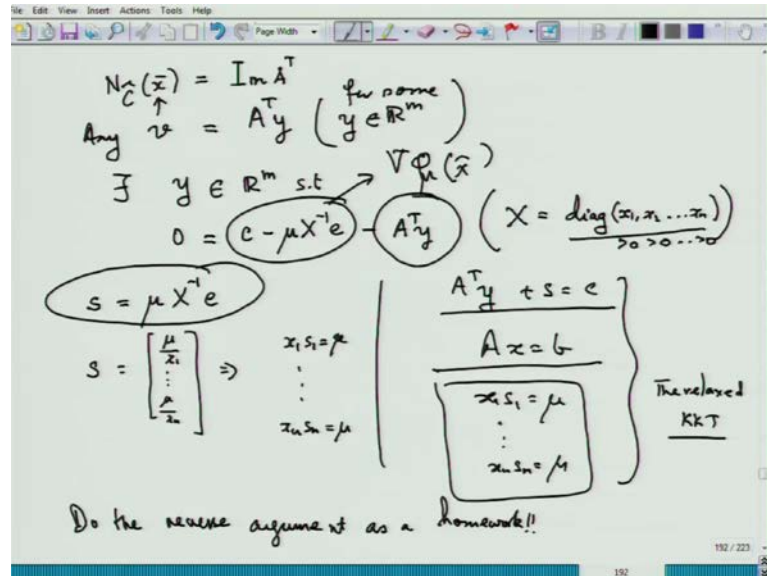 File Edit View Insert Actions Tools Help
Page Width B I
N_Ĉ(x̄) = Im Aᵀ
Any v = Aᵀy (for some y ∈ ℝᵐ)
∃ y ∈ ℝᵐ s.t ∇φ_μ(x̄)
0 = c - μX⁻¹e - Aᵀy (X = diag(x₁, x₂ ... xₙ))
>0 >0 ... >0
s = μX⁻¹e
Aᵀy + s = c
s = [μ/x₁ ⋮ μ/xₙ] ⇒ x₁s₁ = μ
⋮
xₙsₙ = μ
Ax = b
x₁s₁ = μ
⋮
xₙsₙ = μ
The relaxed
KKT
Do the reverse argument as a homework!!
192 / 223
192